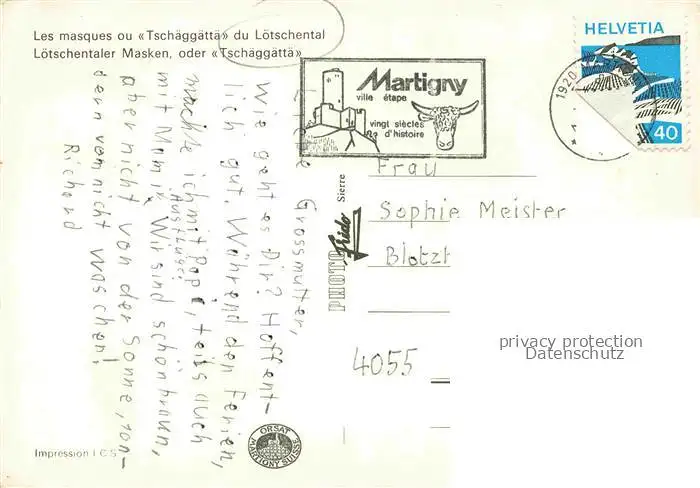 Les masques ou «Tschäggättä» du Lötschental
Lötschentaler Masken, oder «Tschäggättä»
HELVETIA
40
1920
Martigny
ville étape
vingt siècles
d'histoire
Grossmutter,
Wie geht es Dir? Hoffent-
lich gut. Während den Ferien,
machte ich mit Papi, teils auch
mit Mami Ausflüge!
Wir sind schön braun,
aber nicht von der Sonne, son-
dern vom nicht waschen!
Richard
Frau
Sophie Meister
Blotzh
4055
PHOTO Frido Sierre
ORSAT
MARTIGNY SUISSE
Impression I C S
privacy protection
Datenschutz